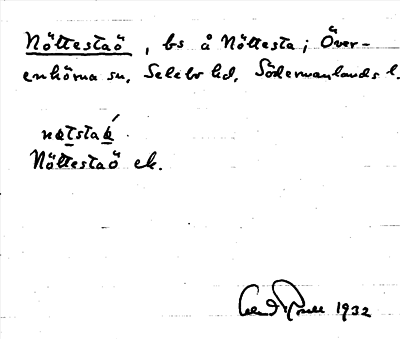 Nöttestaö, bs å Nöttesta i Över-
enhörna sn, Selebo hd, Södermanlands l.
Nöttestaö ek.
1932